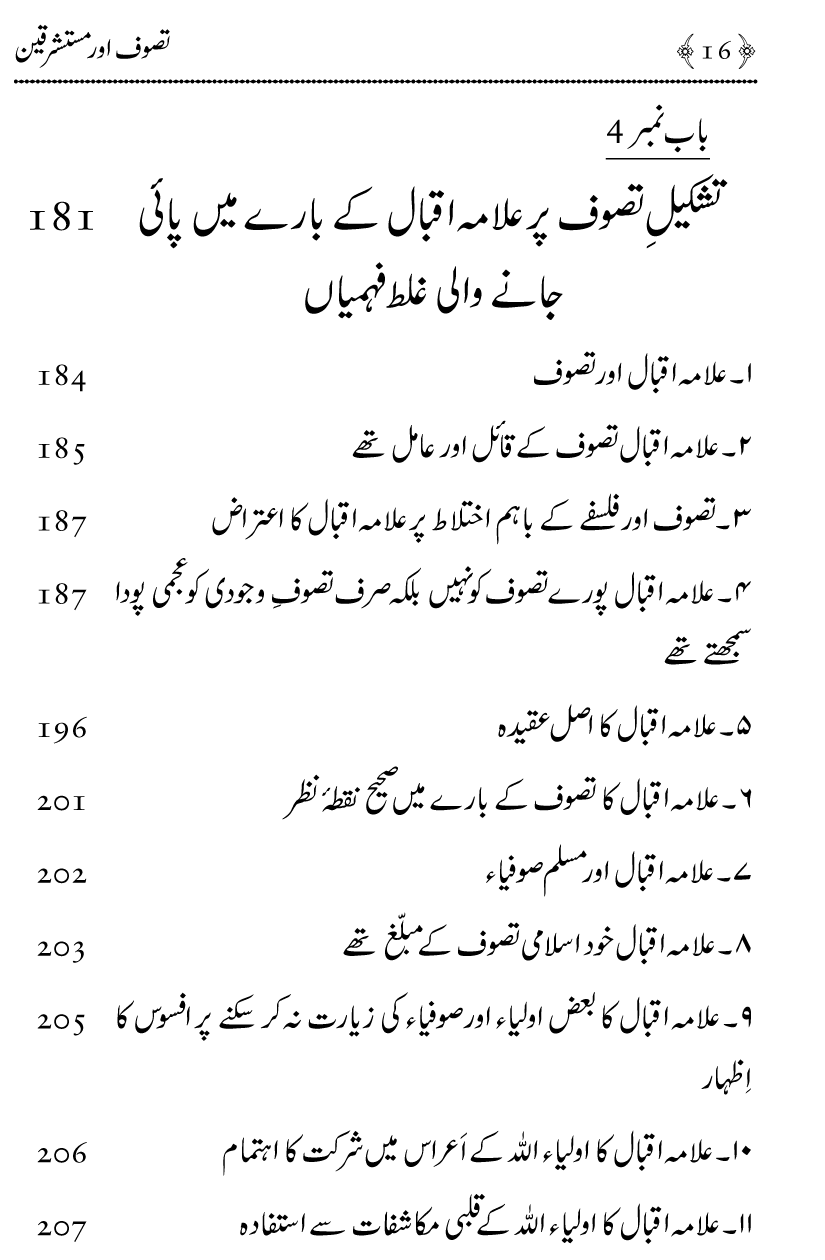 ﴿16﴾ تصوف اور مستشرقین
باب نمبر 4
تشکیلِ تصوف پر علامہ اقبال کے بارے میں پائی 181
جانے والی غلط فہمیاں
۱۔ علامہ اقبال اور تصوف 184
۲۔ علامہ اقبال تصوف کے قائل اور عامل تھے 185
۳۔ تصوف اور فلسفے کے باہم اختلاط پر علامہ اقبال کا اعتراض 187
۴۔ علامہ اقبال پورے تصوف کو نہیں بلکہ صرف تصوفِ وجودی کو عجمی پودا 187
سمجھتے تھے
۵۔ علامہ اقبال کا اصل عقیدہ 196
۶۔ علامہ اقبال کا تصوف کے بارے میں صحیح نقطۂ نظر 201
۷۔ علامہ اقبال اور مسلم صوفیاء 202
۸۔ علامہ اقبال خود اسلامی تصوف کے مبلّغ تھے 203
۹۔ علامہ اقبال کا بعض اولیاء اور صوفیاء کی زیارت نہ کر سکنے پر افسوس کا 205
اِظہار
۱۰۔ علامہ اقبال کا اولیاء اللہ کے اَعراس میں شرکت کا اہتمام 206
۱۱۔ علامہ اقبال کا اولیاء اللہ کے قلبی مکاشفات سے استفادہ 207